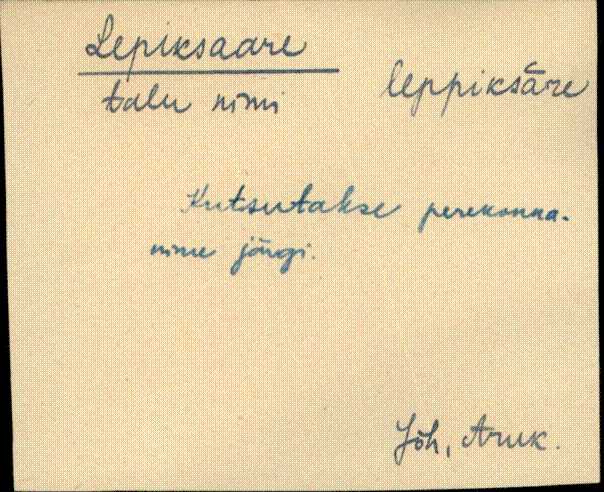 Lepiksaare
talu nimi leppiksāre
Kutsutakse perekonna-
nime järgi.
Jõh, Aruk.